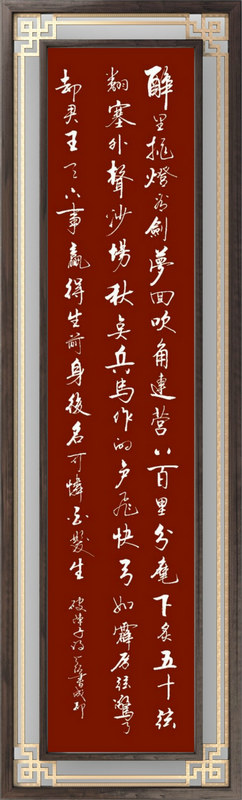 醉里挑燈看劍夢回吹角連營八百里分麾下炙五十弦
翻塞外聲沙場秋点兵馬作的卢飛快弓如霹靂弦驚了
却君王天下事贏得生前身後名可憐白發生
破陣子